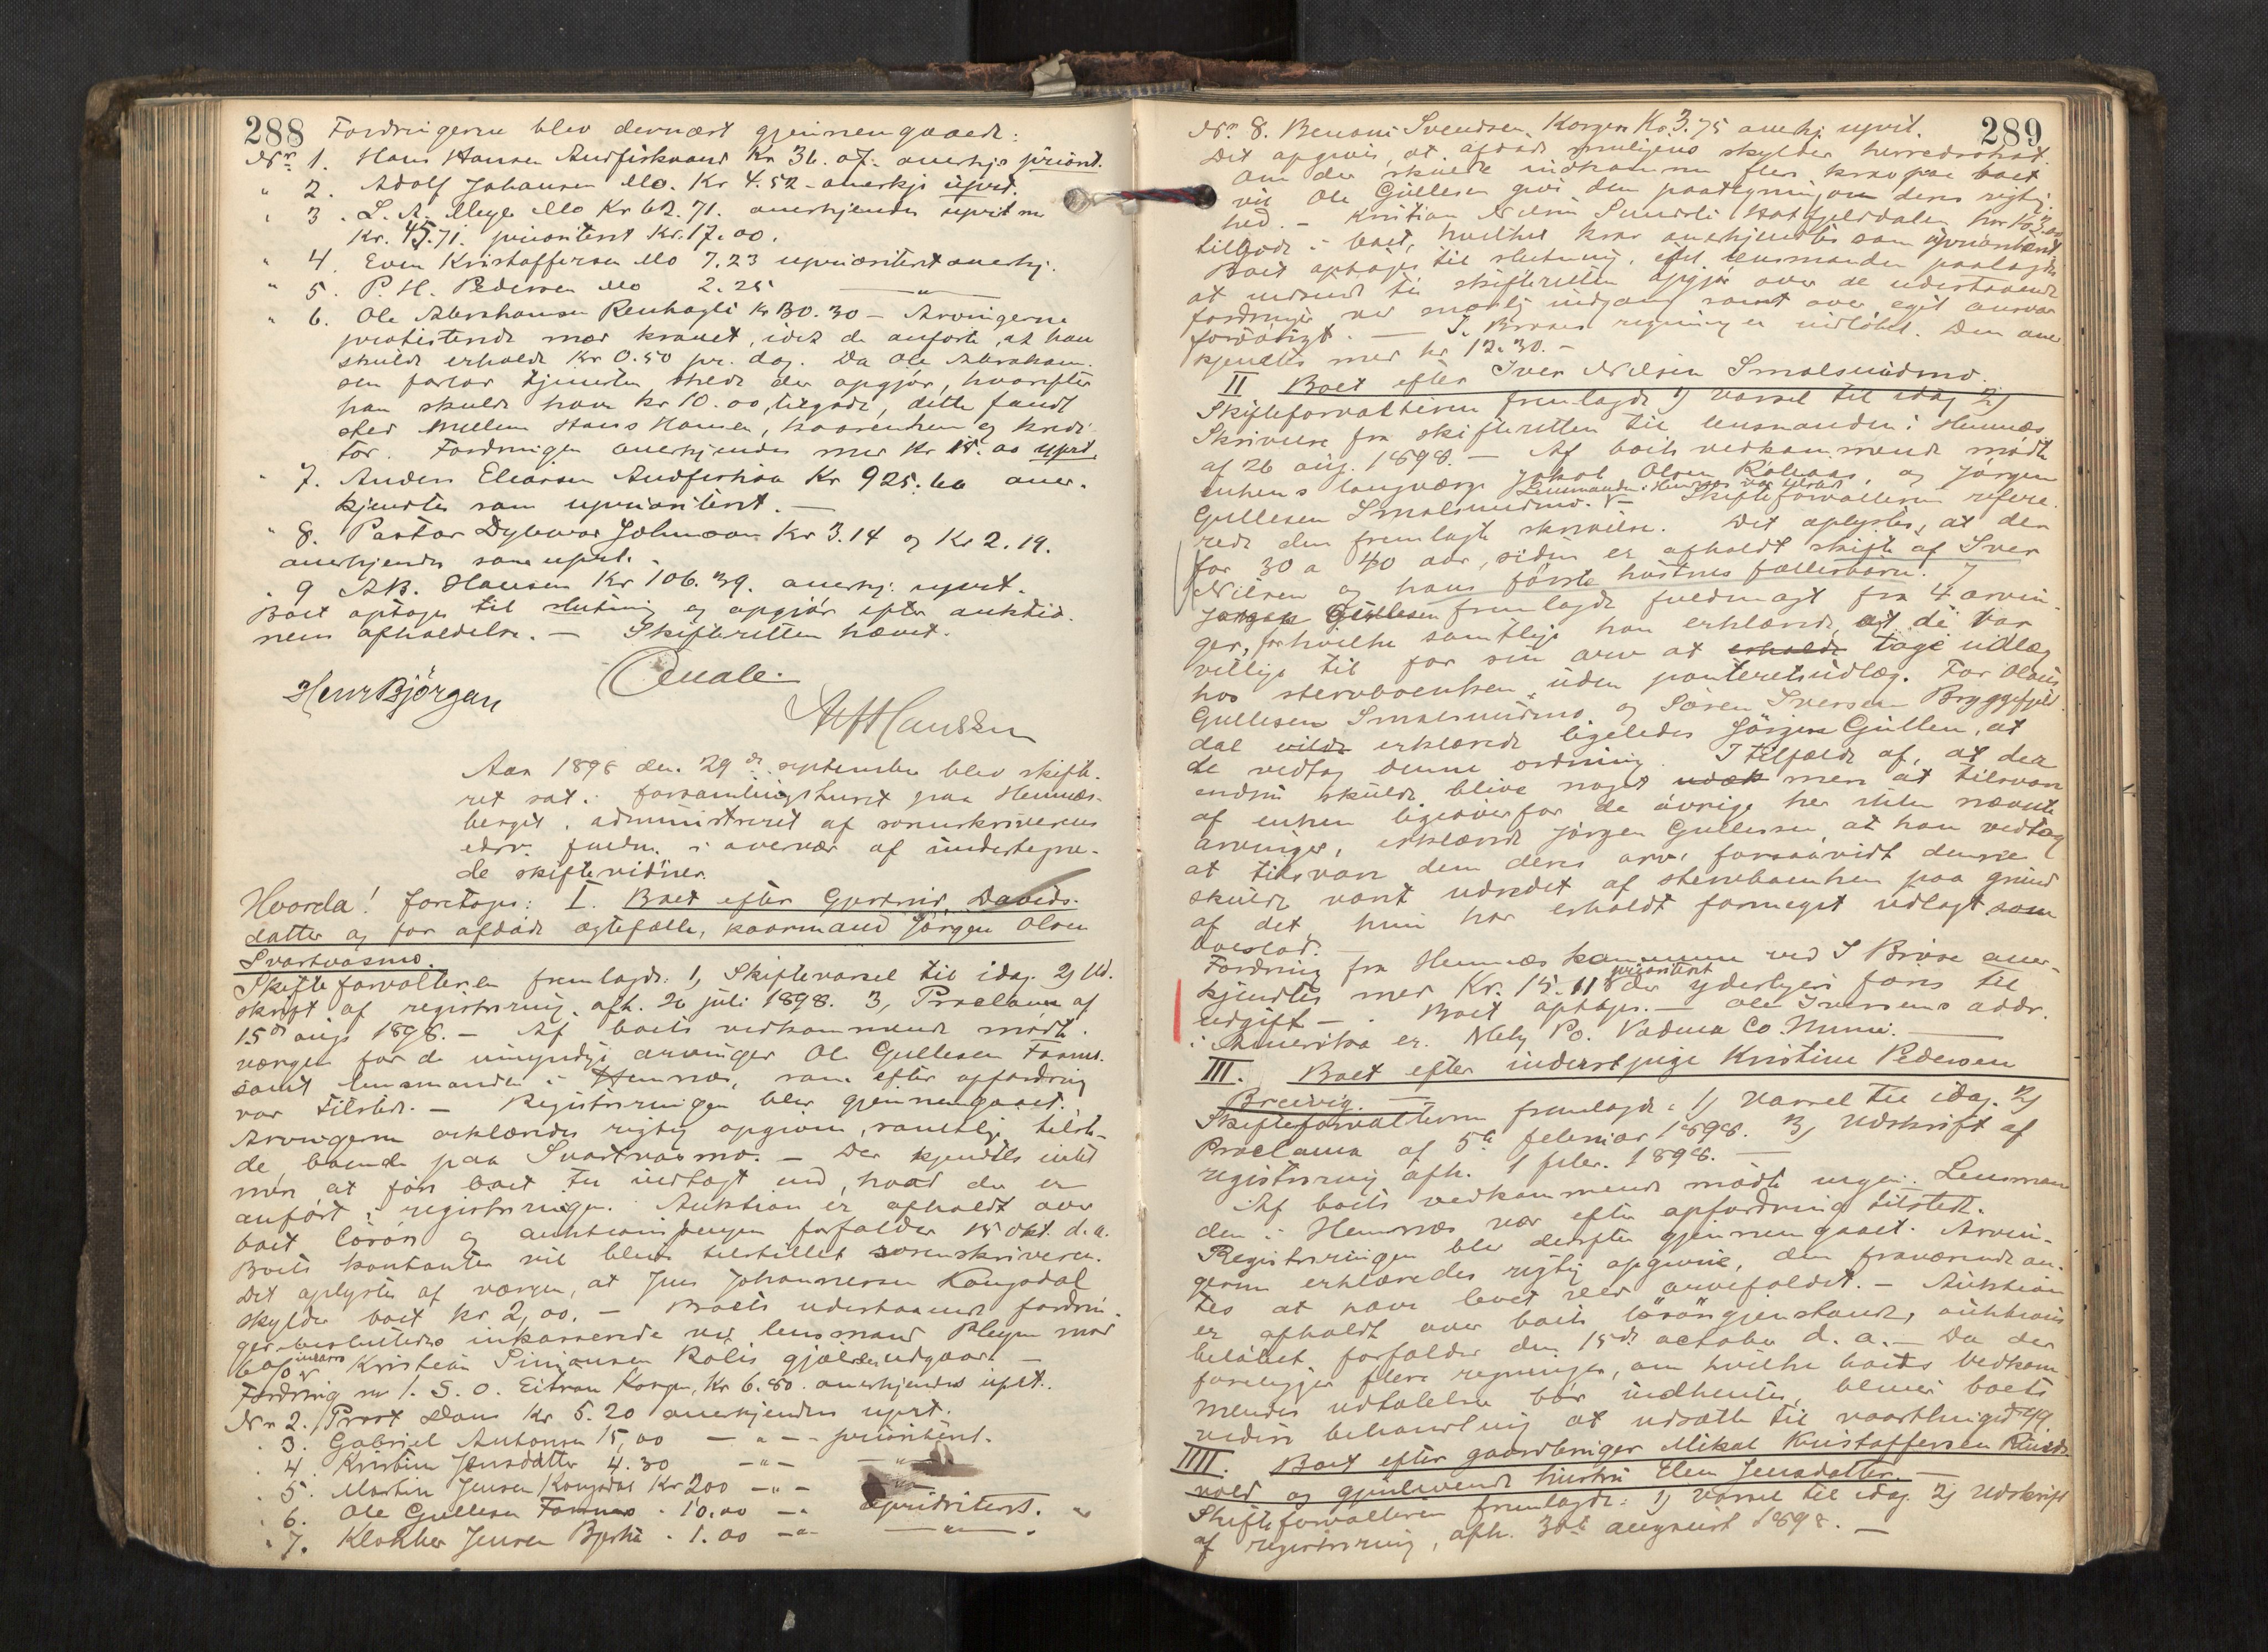 288 Fordringerne blev dernæst gjennemgaaede:
Nr. 1. Hans Hansen Andfiskvand Kr 31.07. anerkjs priorit.
" 2. Adolf Johansen Mo. Kr 4.52 - anerkjs uprt.
" 3. L. A. Meyer Mo Kr 62.71. anerkjendes uprit m
Kr. 45.71. prioritert Kr. 17.00.
" 4. Even Kristoffersen Mo 7.23 uprioritert anerkj.
" 5. P. H. Pedersen Mo 2.25 — " —
" 6. Ole Abrahamsen Kr 30.30 - Arvingerne
protesterede mod kravet, idet de anførte, at han
skulde erholde Kr 0.50 pr. dag. Da Ole Abraham-
sen forlod tjenesten skede der opgjør, hvorefter
han skulde have kr 10.00 tilgode, dette fandt
sted mellem Hans Hansen, kaarenken og kredi-
tor. Fordringen anerkjendes med Kr 15.00 uprt.
" 7. Anders Eliasen Andfiskaa Kr 925.60 aner-
kjendtes som uprioritert. —
" 8. Pastor Dybwad Johnson Kr 3.14 og Kr 2.19.
anerkjendes som uprt. -
" 9 A.B. Hansen Kr 106.39. anerkj. uprt.
Boet optages til slutning og opgjør efter auktio-
nens afholdelse. — Skifteretten hævet.
Henr Bjørgan Qvale.
Hanssen
Aar 1898 den 29de september blev skifte-
ret sat i forsamlingshuset paa Hemnæs-
berget, administreret af sorenskriverens
edsv. fuldm. i overvær af undertegne-
de skiftevidner.
Hvorda! foretoges: I. Boet efter Gjertrud Davids-
datter og før afdøde ægtefælle, kaarmand Jørgen Olsen
Svartvasmo.
Skifteforvalteren fremlagde: 1, Skiftevarsel til idag. 2) Ud-
skrift af registrering, afh. 26 juli 1898. 3, Proclama af
15de augs 1898. — Af boets vedkommende mødte
værgen for de umyndige arvinger Ole Gullesen
samt lensmanden i Hemnæs, som efter opfordring
var tilstede. — Registreringen blev gjennemgaaet.
Arvingerne erklæredes rigtig opgivne, samtlige tilste-
de, boende paa Svartvasmo. — Der kjendtes intet
mer at føre boet til indtægt end, hvad der er
anført i registreringen. Auktion er afholdt over
boet løsøre og auktionspengene forfalder 15 okt. d.a.
Boets kontanter vil blive tilstillet sorenskriveren.
Det oplystes af værgen, at Jens Johannesen Kongsdal
skylder boet kr 2,00. — Boets udestaaende fordrin-
ger besluttedes inkasserede ved lensmand Kleven mod
6 % inkasso Kristian Simonsen Rølis gjæld udgaar. —
Fordring nr 1. S. O. Eitran Korgen, Kr 6.80 anerkjendes uprt.
Nr 2. Prost Dons Kr 5.20 anerkjendes uprt.
" 3. Gabriel Antonsen 15,00 — " — prioritert.
" 4. Kristine Jensdatter 4.30 — " — — " —
" 5. Martin Jensen Kongsdal Kr 200 — " —
" 6. Ole Gullesen " 10.00 — " uprioritert. "
" 7. Klokker Jensen " 1.00 — " — — " — .
289
Nr. 8. Benoni Svendsen, Korgen Kr. 3.75 anerkj. uprit.
Det opgives, at afdøde muligens skylder herredsskat.
Om der skulde indkomme flere krav paa boet
vil Ole Gullesen give dem paategning om deres rigtig-
hed. — Kristian Nilsen Hatfjelddalen har Kr 3.00
tilgode i boet, hvilket krav anerkjendtes som uprioritert
Boet optages til slutning, idet lensmanden paalagdes
at indsende til skifteretten opgjør over de udestaaende
fordringer ved mulig indgang samt over eget ansvar
forøvrigt. — I. Broses regning er indløbet. Den aner-
kjendtes med kr 12.30. —
II Boet efter Iver Nilsen Smalsundmo.
Skifteforvalteren fremlagde 1) varsel til idag 2)
Skrivelse fra skifteretten til lensmanden i Hemnæs
af 26 aug. 1898. — Af boets vedkommende mødte
enkens laugværge Jakob Olsen og Jørgen
Gullesen Smalsundmo. Lensmanden i Hemnæs var tilstede — Skifteforvalteren refere-
rede den fremlagte skrivelse. Det oplystes, at der
for 30 a 40 aar siden er afholdt skifte af Iver
Nilsen og hans første hustrus fællesbørn. —
Jørgen Gullesen fremlagde fuldmagt fra 4 arvin-
ger, for hvilke samtlige han erklærede, at de var
villige til for sin arv at erholde tage udlæg
hos stervboenken, uden panteretsudlæg. For Olaus
Gullesen Smalsundmo og Søren Iversen Bryggefjeld-
dal vilde erklærede ligeledes Jørgen Gullesen, at
de vedtog denne ordning. I tilfælde af, at der
endnu skulde blive noget udæk mere at tilsvare
af enken ligeoverfor de øvrige her ikke nævnte
arvinger, erklærede Jørgen Gullesen, at han vedtog
at tilsvare dem deres arv, forsaavidt denne
skulde været udredet af stervboenken paa grund
af det, hun har erholdt formeget udlagt som
boeslod. —
Fordring fra Hemnæs kommune ved I Brose aner-
kjendtes med Kr. 15.11 prioritert der yderligere føres til
udgift — . Boet optages. — Ole Iversens addr.
i Amerika er. Po. Vadena Co. Minn. —
III. Boet efter inderstpige Kristine Pedersen
Bredvig. —
Skifteforvalteren fremlagde: 1) Varsel til idag. 2)
Proclama af 5te februar 1898. 3) Udskrift af
registrering afh. 1 febr. 1898. —
Af boets vedkommende mødte ingen. Lensman-
den i Hemnæs var efter opfordring tilstede.
Registreringen blev derefter gjennemgaaet. Arvin-
gerne erklæredes rigtig opgivne, den fraværende an-
tes at have levet ved arvefaldet. — Auktion
er afholdt over boets løsøregjenstande, auktions
beløbet forfalder den 15de october d. a. — Da der
foreligger flere regninger, om hvilke boets vedkom-
mendes udtalelse bør indhentes, blev boets
videre behandling at udsætte til vaarthinget 99.
IIII. Boet efter gaardbruger Mikal Kristoffersen
vold og gjenlevende hustru Elen Jensdatter. —
Skifteforvalteren fremlagde: 1) Varsel til idag. 2) Udskrift
af registrering, afh. 30te august 1898. —